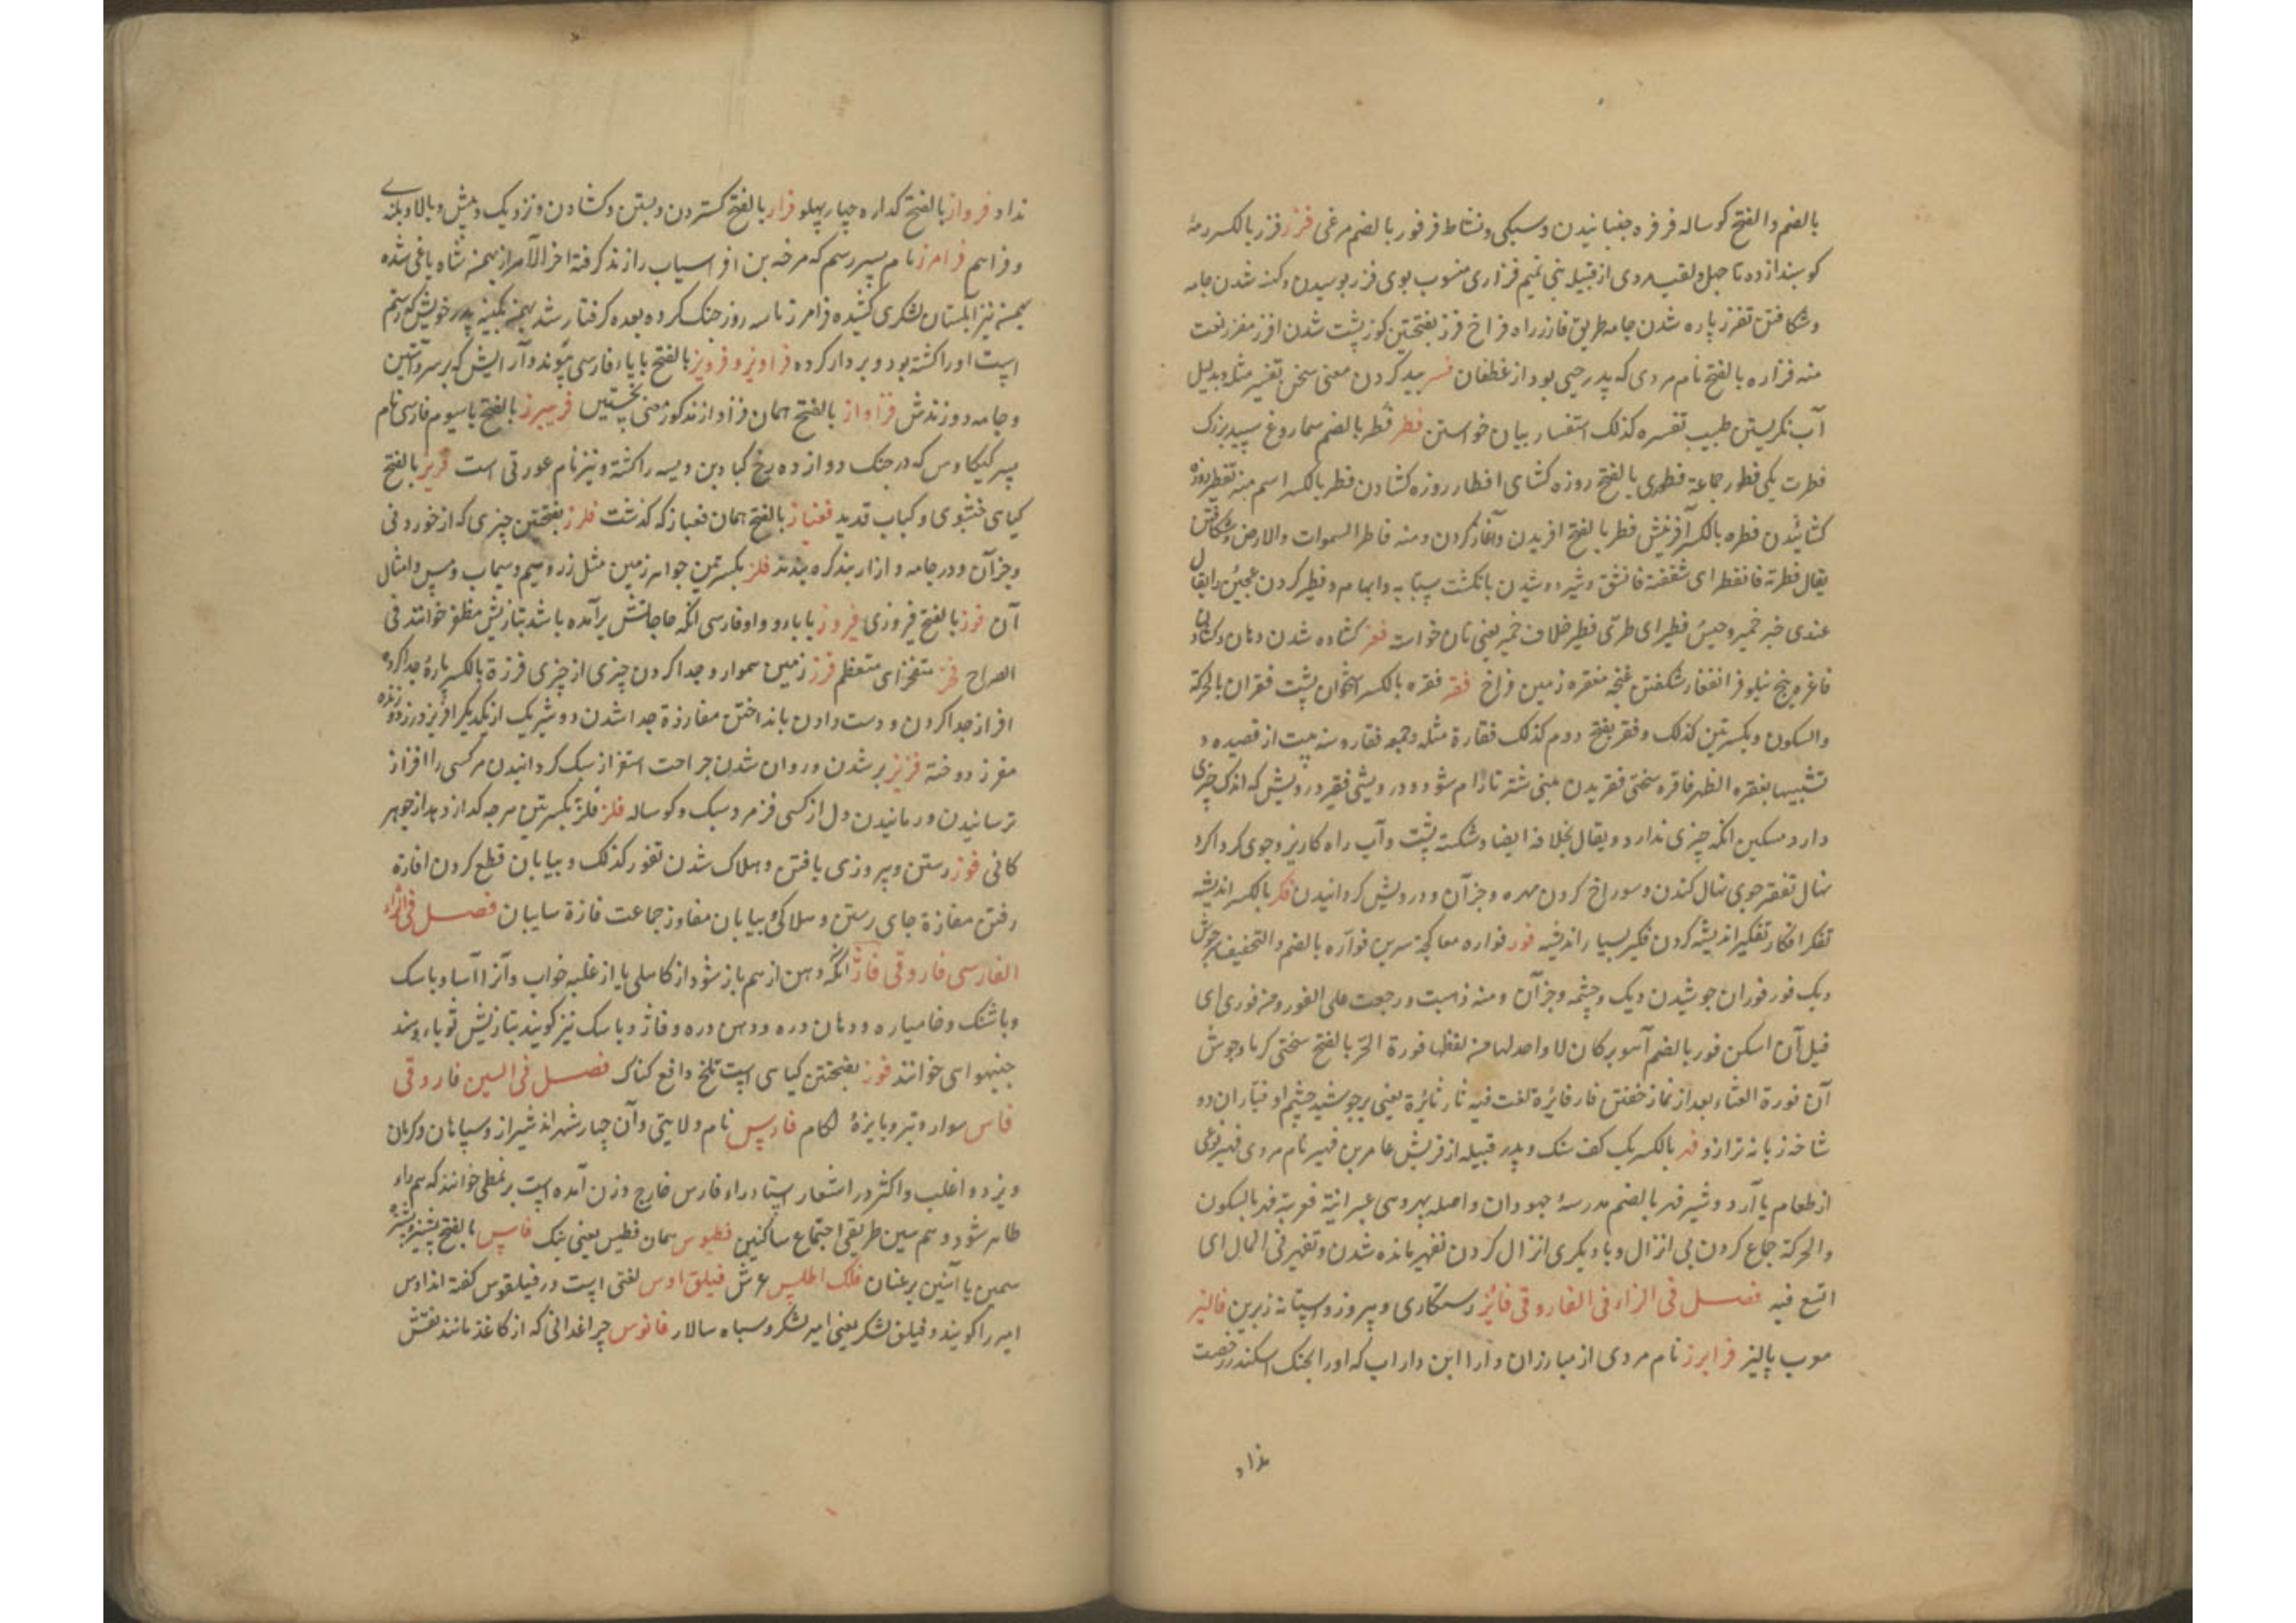 بالضم والفتح کوساله فرفره جنبانیدن وسبکی ونشاط فرفور بالضم مرغی فزر فزر بالکسر رمهٔ
کوسپند از ده تا چهل ولقب مردی از قبیله بنی تمیم فزاری منسوب بوی فزر بوسیدن وکهنه شدن جامه
وشکافتن تفزر پاره شدن جامه طریق فازر راه فراخ فزر بفتحتین کوز پشت شدن افزر مفزر نعت
منه فزاره بالفتح نام مردی که پدر حیی بود از غطفان فسر پید کردن معنی سخن تفسیر مثله وبدلیل
آب نکریستن طبیب تفسره کذلک استفسار بیان خواستن فطر فطر بالضم سماروغ سپید بزرک
فطرت یکی فطور جماعة فطوری بالفتح روزه کشای افطار روزه کشادن فطر بالکسر اسم منه تفطیر روزه
کشائیدن فطره بالکسر آفرینش فطر بالفتح افریدن وآغاز کردن ومنه فاطر السموات والارض وشکافتن
یقال فطرته فانفطر ای شققته فانشق وشیر دوشیدن بانکشت سبابه وابهام وفطیر کردن عجین را یقال
عندی خبز خمیر وحیس فطیر ای طری فطیر خلاف خمیر یعنی نان خواسته فغر کشاده شدن دهان وکشادن
فاغره بیخ نیلوفر انفغار شکفتن غنچه مفغره زمین فراخ فقر فقره بالکسر استخوان پشت فقران بالحرکة
والسکون وبکسرتین کذلک وفقر بفتح دوم کذلک فقارة مثله وجمعه فقار ومنه بیت از قصیده و
تشبیها بفقره الظهر فاقره سختی فقر یدن بینی شتر تا رام شود ودرویشی فقیر درویش که اندک چیزی
دارد مسکین انکه چیزی ندارد ویقال بخلافه ایضا وشکسته پشت وآب راه کاریز وجوی کرداکرد
نهال تفقیر جوی نهال کندن وسوراخ کردن مهره وجزآن ودرویش کردانیدن فکر بالکسر اندیشه
تفکر افکار تفکیر اندیشه کردن فکیر بسیار اندیشه فور فواره معا کچهٔ سرین فوآره بالضم والتخفیف سرجوش
دیک فور فوران جوشیدن دیک وچشمه وجزآن ومنه ذهبت ورجعت علی الفور ومن فوری ای
قبل آن اسکن فور بالضم آهو برکان لا واحد لها من لفظها فورة الحر بالفتح سختی کرما وجوش
آن فورة العشاء بعد از نماز خفتن فار فائرة لغت فیه ثار ثائرة یعنی برجوشید خشم او فیاران دو
شاخه زبانه ترازو فهر بالکسر یک کف سنک وپدر قبیله از قریش عامر بن فهیر نام مردی فهیر نوعی
از طعام با آرد وشیر فهر بالضم مدرسهٔ جهودان واصله بهر وهی عبرانیة فعربت فهر بالسکون
والحرکة جماع کردن بی انزال وبا دیکری انزال کردن تفهیر مانده شدن وتفهر فی المال ای
اتسع فیه فصل فی الزاء فی الفاروقی فائز رستکاری وپیروز وسپتانه زیرین فالیز
معرب پالیز فرابرز نام مردی از مبارزان دارا ابن داراب که اورا بجنک اسکندر رخصت
نداد
نداد فرواز بالفتح کداره چهارپهلو فراز بالفتح کستردن وبستن وکشادن ونزدیک وپیش وبالا وبلندی
وفراهم فرامرز نام پسر رستم که سرخه بن افراسیاب را زنده کرفته اخرالامر از بهمن شاه یاغی شده
بهمن نیز آنستان لشکری کشیده فرامرز تا سه روز جنک کرده بعده کرفتار شد بهمن بکینه پدر خویش که رستم
است اورا کشته بود وبردار کرده فراویز وفرویز بالفتح با یاء فارسی پیوند وآرایش که بر سر آستین
وجامه دوزندش فزاواز بالفتح همان فزاواز مذکور معنی نخستین فریبرز بالفتح با سیوم فارسی نام
پسر کیکاوس که در جنک دوازده رخ کباد بن ویسه را کشته ونیز نام عورتی است فریز بالفتح
کیاهی خشبوی وکباب قدید فغیاز بالفتح همان فغیاز که کذشت فلرز بفتحتین چیزی که از خوردنی
وجزآن ودر جامه وازار بند کره بندند فلز بکسرتین جواهر زمین مثل زر وسیم وسیماب ومس وامثال
آن فوز بالفتح فیروزی فیروز با یاء و واو فارسی انکه حاجاتش برآمده باشد بتازیش مظفر خوانند فی
الصراح فخز متفخز ای متعظم فرز زمین هموار وجدا کردن چیزی از چیزی فرزة بالکسر پارهٔ جدا کرده
افراز جدا کردن ودست دادن بانداختن مفارزة جدا شدن دو شریک از یکدیکر افریز درزدوزنده
مفرز دوخته فزیز پر شدن وروان شدن جراحت استفزاز سبک کردانیدن مر کسی را افزاز
ترسانیدن ورمانیدن دل از کسی فز مرد سبک وکوساله فلز فلز بکسرتین هرچه کدازد بد از جوهر
کانی فوز رستن وپیروزی یافتن وهلاک شدن تفوز کذلک وبیابان قطع کردن افازة
رفتن مفازة جای رستن وهلاکی وبیابان مفاوز جماعت فازة سایبان فصل فی الزاء
الفارسی فاروقی فاژ انکه دهن از هم باز شود از کاهلی یا از غلبه خواب وآنرا آسا وباسک
وباشنک وخامیاره ودهان دره ودهن دره وفاژ وباسک نیز کویند بتازیش ثوباء وهند
جنبهواهی خوانند فوژ بفتحتین کیاهی است تلخ دافع کناک فصل فی السین فاروقی
فاس سوار وتبر وبابزهٔ لکام فارس نام ولایتی وآن چهار شهر اند شیراز وسپاهان وکرمان
ویزد و اغلب واکثر در اشعار استاد راء فارس خارج وزن آمده است بر نمطی خوانند که هم راء
ظاهر شود وهم سین طریقی اجتماع ساکنین فطیوس همان فطیس یعنی پتک فاس بالفتح پشیزه
سیمین یا آهنین بر عنان فلک اطلس عرش فیلق اوس لغتی است در فیلقوس کفته اند اوس
امیر را کویند وفیلق لشکر یعنی امیر لشکر وسپاه سالار فانوس چراغدانی که از کاغذ مانند نقش